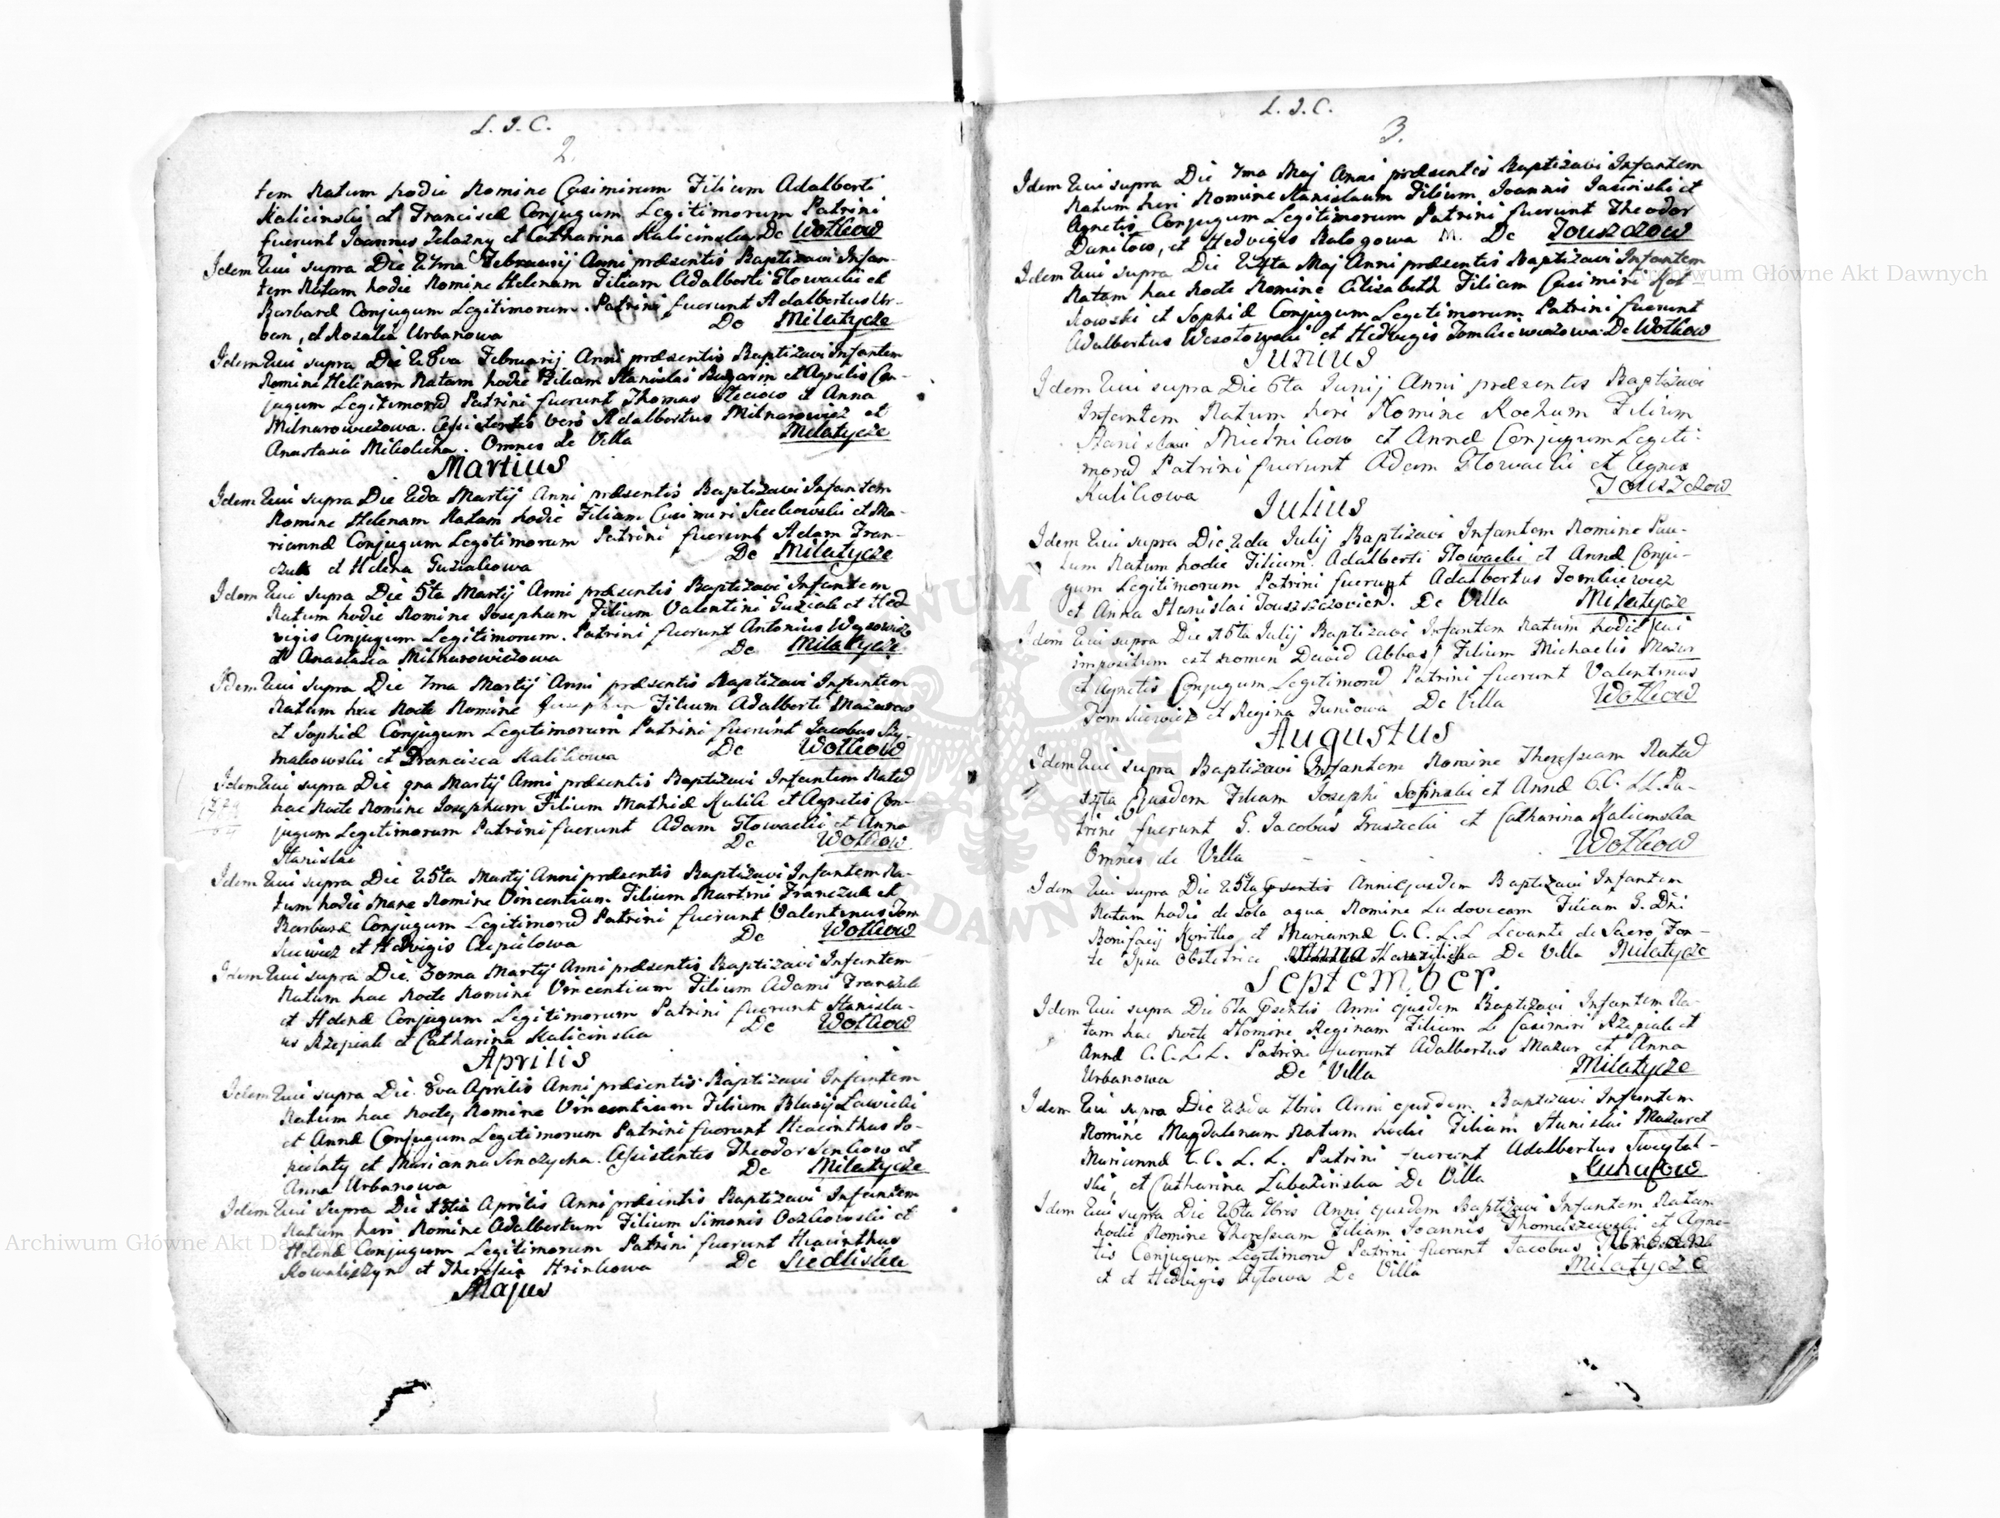 L. J. C.
2.
tem Natum hodie Nomine Casimirum Filium Adalberti
Kalicinski et Franciscæ Conjugum Legitimorum Patrini
fuerunt Joannes Zelazny et Catharina Kalicinska De Wołkow
Idem Qui supra Die 27ma Februarij Anni præsentis Baptizavi Infan-
tem Natam hodie Nomine Helenam Filiam Adalberti Głowacki et
Barbaræ Conjugum Legitimorum. Patrini fuerunt Adalbertus Ur-
ban, et Rosalia Urbanowa De Milatycze
Idem Qui supra Die 28va Februarij Anni præsentis Baptizavi Infantem
Nomine Helenam Natam hodie Filiam Stanislai et Agnetis Con-
jugum Legitimorũ Patrini fuerunt Thomas Steciow et Anna
Milnarowiczowa. Assistentes vero Adalbertus Milnarowicz et
Anastasia. Omnes de Villa Milatycze
Martius
Idem Qui supra Die 2da Martij Anni præsentis Baptizavi Infantem
Nomine Helenam Natam hodie Filiam Casimiri Siechowski et Ma-
riannæ Conjugum Legitimorum Patrini fuerunt Adam Fran-
czuk et Helena Guzialowa De Milatycze
Idem Qui supra Die 5ta Martij Anni præsentis Baptizavi Infantem
Natum hodie Nomine Josephum Filium Valentini et Hed
vigis Conjugum Legitimorum. Patrini fuerunt Antonius
et Anastasia Milnarowiczowa De Milatycze
Idem Qui supra Die 7ma Martij Anni præsentis Baptizavi Infantem
Natum hac Nocte Nomine Josephum Filium Adalberti Mazurow
et Sophiæ Conjugum Legitimorum Patrini fuerunt Jacobus Szy-
makowski et Francisca Kulikowa De Wołkow
Idem Qui supra Die 9na Martij Anni præsentis Baptizavi Infantem Natũ
hac Nocte Nomine Josephum Filium Mathiæ Kulik et Agnetis Con-
jugum Legitimorum Patrini fuerunt Adam Głowacki et Anna
Stanislai De Wołkow
Idem Qui supra Die 25ta Martij Anni præsentis Baptizavi Infantem Na-
tum hodie Mane Nomine Vincentium Filium Martini Franczuk et
Barbaræ Conjugum Legitimorũ Patrini fuerunt Valentinus Tom
kiewicz et Hedvigis Czepilowa De Wołkow
Idem Qui supra Die 30ma Martij Anni præsentis Baptizavi Infantem
Natum hac Nocte Nomine Vincentium Filium Adami Franczuk
et Helenæ Conjugum Legitimorum Patrini fuerunt Stanisla-
us Rzepiak et Catharina Kalicinska De Wołkow
Aprilis
Idem Qui supra Die 8va Aprilis Anni præsentis Baptizavi Infantem
Natum hac Nocte, Nomine Vincentium Filium Blasij Ławicki
et Annæ Conjugum Legitimorum Patrini fuerunt Hiacinthus
et Marianna. Assistentes Theodor Senkow et
Anna Urbanowa De Milatycze
Idem Qui supra Die 13tia Aprilis Anni præsentis Baptizavi Infantem
Natum heri Nomine Adalbertum Filium Simonis et
Helenæ Conjugum Legitimorum Patrini fuerunt Hiacinthus
Kowaliszyn et Theresia Hrinkowa De Siedliska
Majus
L. J. C.
3.
Idem Qui supra Die 7ma Maj Anni præsentis Baptizavi Infantem
Natum heri Nomine Stanislaum Filium Joannis Jasinski et
Agnetis Conjugum Legitimorum Patrini fuerunt Theodor
Daniłow, et Hedvigis Kałogowa De Touszczow
Idem Qui supra Die 24ta Maj Anni præsentis Baptizavi Infantem
Natam hac Nocte Nomine Elisabeth Filiam Casimiri
et Sophiæ Conjugum Legitimorum Patrini fuerunt
Adalbertus Wesołowski et Hedvigis Tomkiewiczowa De Wołkow
Junius
Idem Qui supra Die 6ta Junij Anni præsentis Baptizavi
Infantem Natum heri Nomine Rochum Filium
Stanislai Mielnikow et Annæ Conjugum Legiti-
morũ Patrini fuerunt Adam Głowacki et Agnes
Kulikowa Touszczow
Julius
Idem Qui supra Die 2da Julij Baptizavi Infantem Nomine Pau-
lum Natum hodie Filium Adalberti Głowacki et Annæ Conju-
gum Legitimorum Patrini fuerunt Adalbertus Tomkiewicz
et Anna Stanislai. De Villa Milatycze
Idem Qui supra Die 16ta Julij Baptizavi Infantem Natum hodie cui
impositum est Nomen David Abbas Filium Michaelis Mazur
et Agnetis Conjugum Legitimorũ Patrini fuerunt Valentinus
Tomkiewicz et Regina Juniowa De Villa Wołkow
Augustus
Idem Qui supra Baptizavi Infantem Nomine Theressiam Natã
14ta Ejusdem Filiam Josephi Sosinski et Annæ C.C. LL. Pa-
trini fuerunt G. Jacobus Gruszecki et Catharina Kalicinska
Omnes de Villa Wołkow
Idem Qui supra Die 25ta Anni ejusdem Baptizavi Infantem
Natam hodie de sola aqua Nomine Ludovicam Filiam G. Dni
Bonifacij et Mariannæ C. C. L. L Levante de Sacro Fon-
te Ipsa Obstetrice Anna De Villa Milatycze
September.
Idem Qui supra Die 6ta Anni ejusdem Baptizavi Infantem Na-
tam hac Nocte Nomine Reginam Filiam Casimiri Rzepiak et
Annæ C.C.L.L. Patrini fuerunt Adalbertus Mazur et Anna
Urbanowa De Villa Milatycze
Idem Qui supra Die 22da 7bris Anni ejusdem Baptizavi Infantem
Nomine Magdalenam Natam hodie Filiam Stanislai Mazur et
Mariannæ C.C. L. L. Patrini fuerunt Adalbertus
et Catharina De Villa
Idem Qui supra Die 26ta 7bris Anni ejusdem Baptizavi Infantem Natam
hodie Nomine Theressiam Filiam Joannis Thomaszewski et Agne-
tis Conjugum Legitimorũ Patrini fuerunt Jacobus Urban
et Hedvigis De Villa Milatycze
Archiwum Główne Akt Dawnych
Archiwum Główne Akt Dawnych